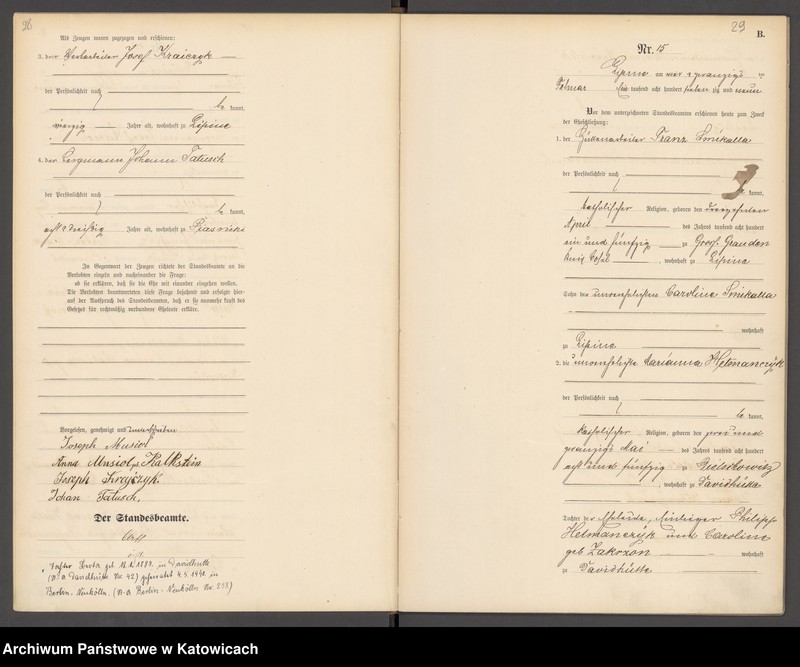 28
Als Zeugen waren zugezogen und erschienen:
3. der Josef Kraiczyk
der Persönlichkeit nach
kannt,
vierzig Jahre alt, wohnhaft zu Lipine
4. der Bergmann Johann Tatusch
der Persönlichkeit nach
kannt,
Jahre alt, wohnhaft zu Piasniki
In Gegenwart der Zeugen richtete der Standesbeamte an die
Verlobten einzeln und nacheinander die Frage:
ob sie erklären, daß sie die Ehe mit einander eingehen wollen.
Die Verlobten beantworteten diese Frage bejahend und erfolgte hier-
auf der Ausspruch des Standesbeamten, daß er sie nunmehr kraft des
Gesetzes für rechtmäßig verbundene Eheleute erkläre.
Vorgelesen, genehmigt und unterschrieben
Joseph Musiol
Anna Musiol, Kalkstein
Joseph Krajczyk
Johan Tatusch.
Der Standesbeamte.
(N. A. Davidhütte Nr. 42) geheiratet 4.5.1940 in
Berlin-Neukölln. (N. A. Berlin-Neukölln Nr. 258)
29
B.
Nr. 15
Lipine am vier zwanzigs ten
Februar tausend acht hundert sieben zig und neun
Vor dem unterzeichneten Standesbeamten erschienen heute zum Zweck
der Eheschließung:
1. der Hüttenarbeiter Franz Smikalla
der Persönlichkeit nach
kannt,
katholischer Religion, geboren den
April des Jahres tausend acht hundert
ein und fünfzig zu Gross Grauden
Kreis Cosel, wohnhaft zu Lipine
Sohn der unverehelichten Caroline Smikalla
wohnhaft
zu Lipine
2. die unverehelichte Marianna Hetmanczyk
der Persönlichkeit nach
kannt,
katholischer Religion, geboren den
zwanzigs Mai des Jahres tausend acht hundert
acht und fünfzig zu
, wohnhaft zu Davidhütte
Tochter der Eheleute, Einlieger Philipp
Hetmanczyk und Caroline
geb wohnhaft
zu Davidhütte
Archiwum Państwowe w Katowicach